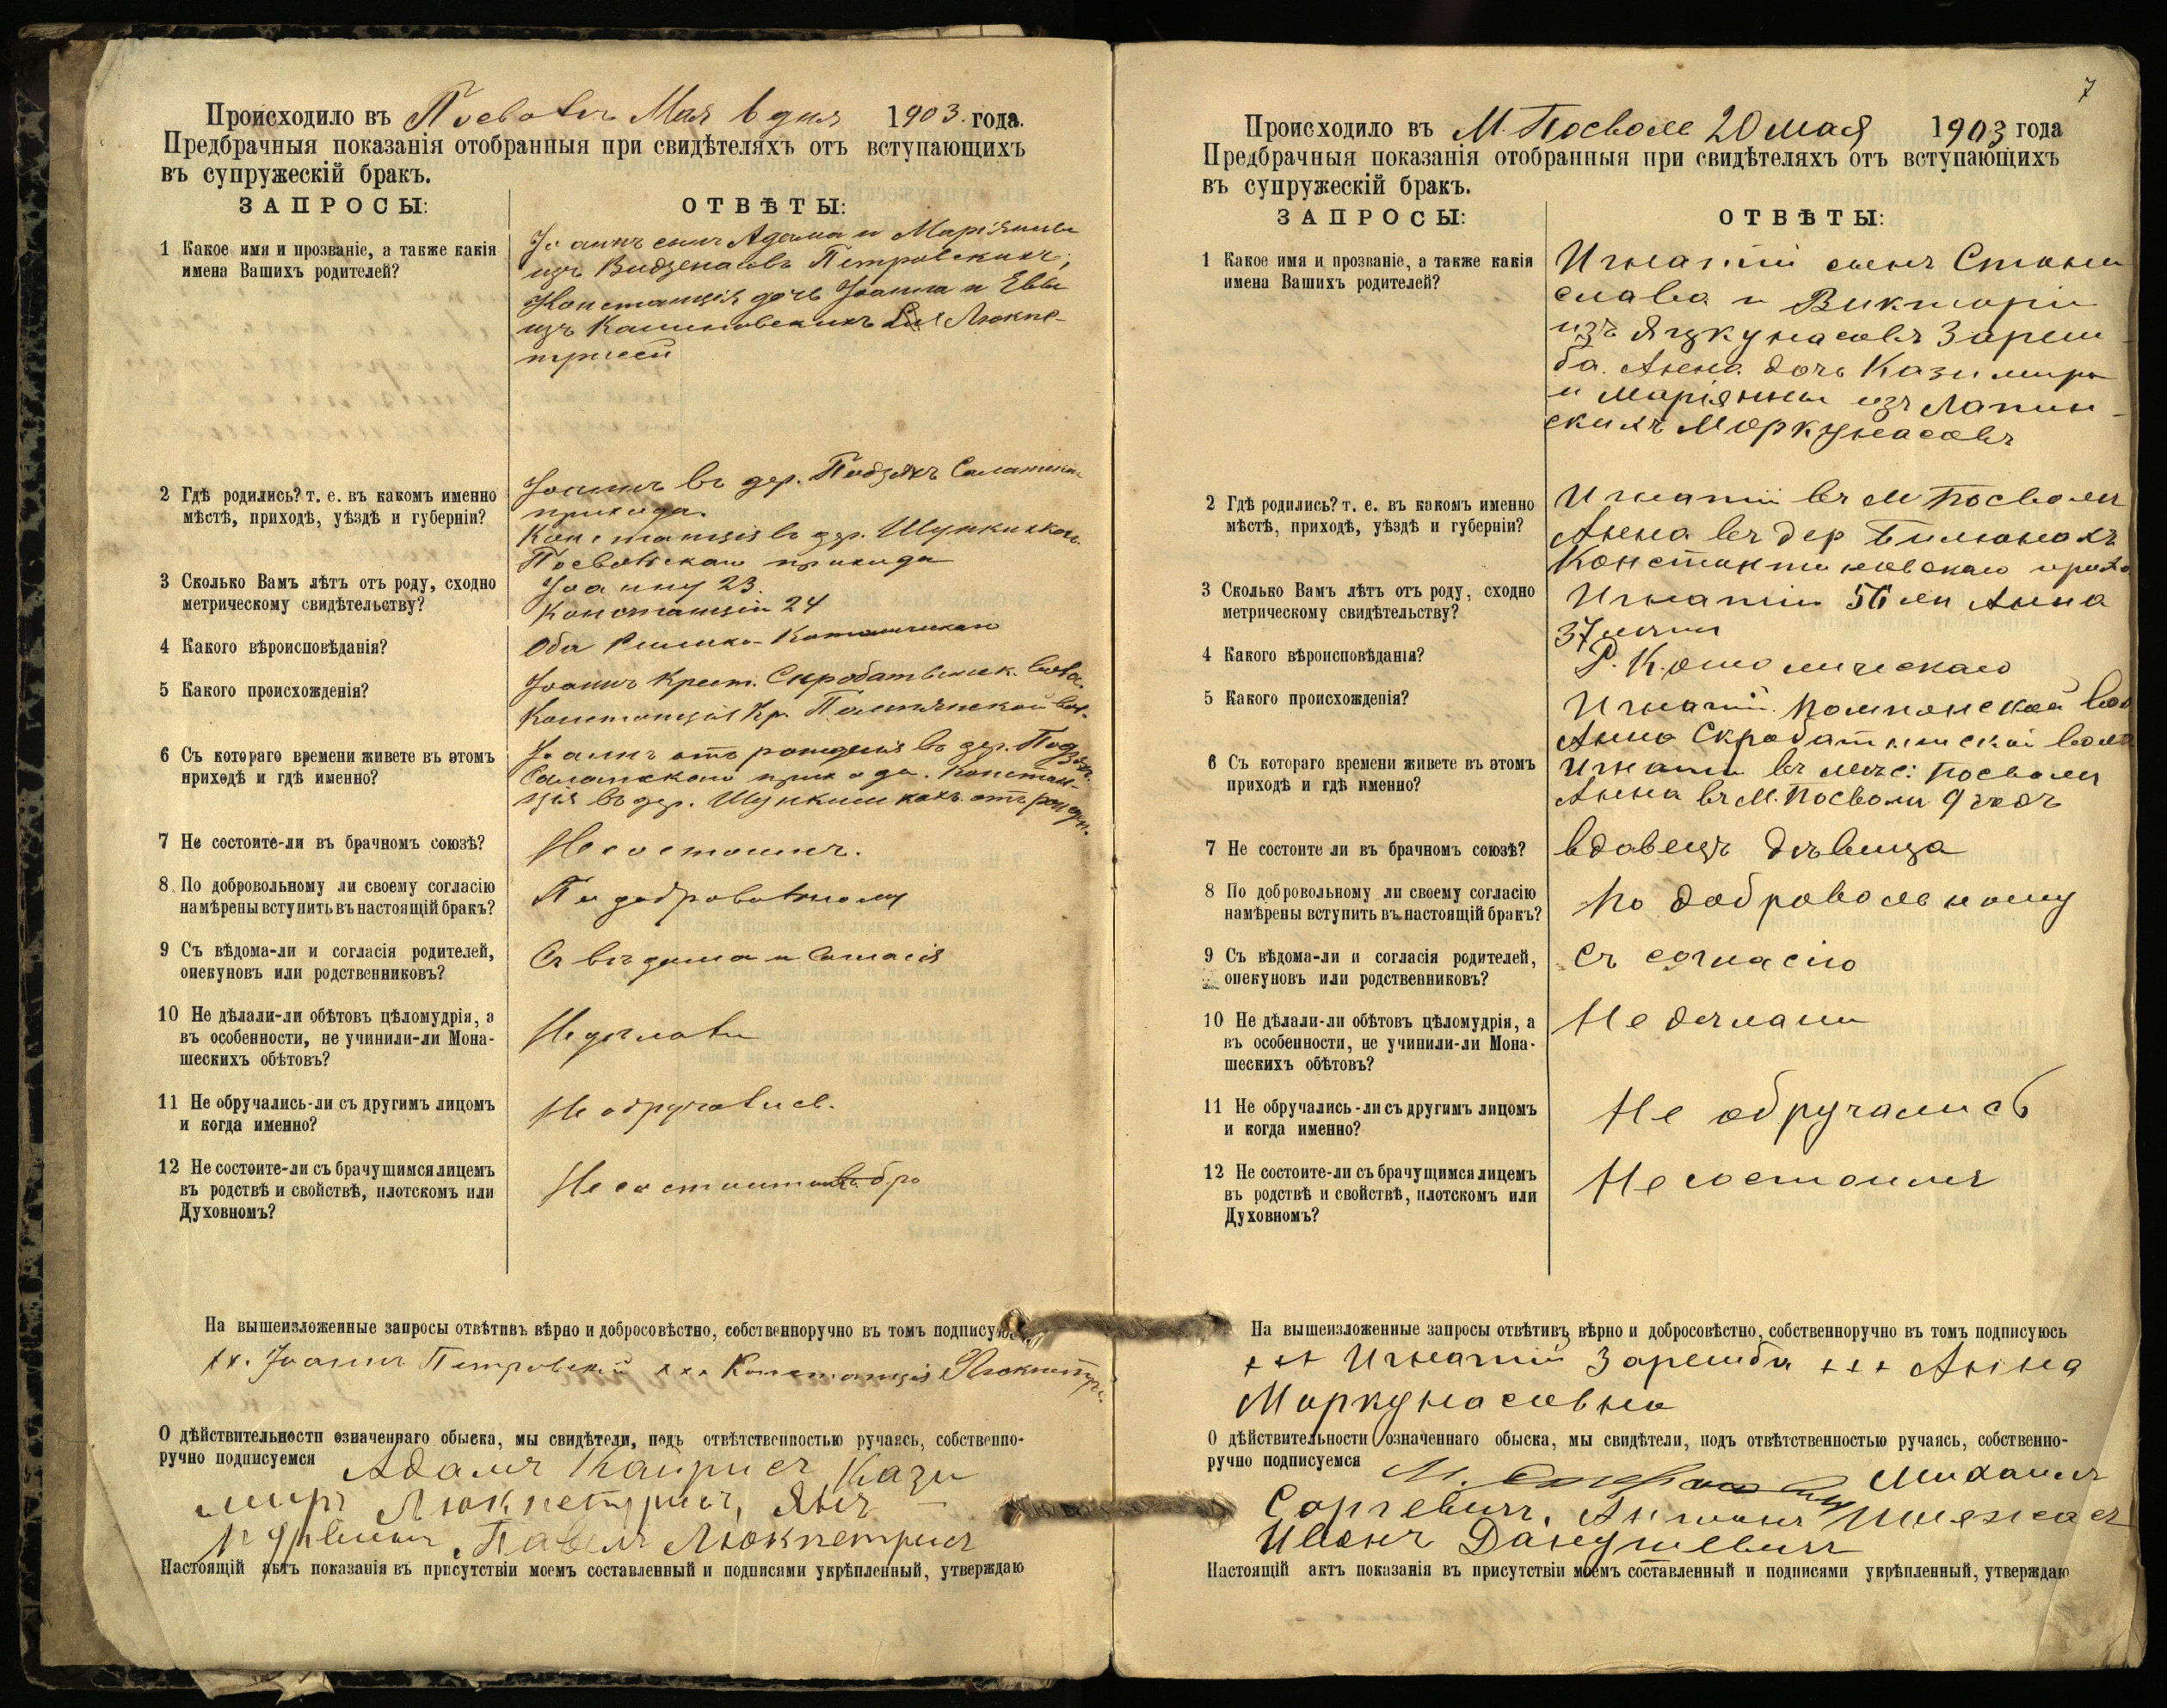 Происходило въ Посволь Мая 6 дня 1903 года.
Предбрачныя показанія отобранныя при свидѣтеляхъ отъ вступающихъ
въ супружескій бракъ.
ЗАПРОСЫ: ОТВѢТЫ:
1 Какое имя и прозваніе, а также какія
имена Вашихъ родителей?
Іоаннъ сынъ Адама и Маріянны
изъ Видзенасовъ Петровскихъ,
Констанція дочь Іоанна и Еввы
изъ Калиновскихъ Люкпе-
трисей
2 Гдѣ родились? т. е. въ какомъ именно
мѣстѣ, приходѣ, уѣздѣ и губерніи?
Іоаннъ въ дер.
прихода.
Констанція въ дер.
Посвольскаго прихода
3 Сколько Вамъ лѣтъ отъ роду, сходно
метрическому свидѣтельству?
Іоанну 23.
Констанціи 24
4 Какого вѣроисповѣданія?
Оба Римско-Католическаго
5 Какого происхожденія?
Іоаннъ крест. Скробатишск. вол.
Констанція кр. вол.
6 Съ котораго времени живете въ этомъ
приходѣ и гдѣ именно?
Іоаннъ отъ рожденія въ дер.
прихода. Констан-
ція въ дер. отъ рожден.
7 Не состоите-ли въ брачномъ союзѣ?
Не состоимъ.
8 По добровольному ли своему согласію
намѣрены вступить въ настоящій бракъ?
По добровольному
9 Съ вѣдома-ли и согласія родителей,
опекуновъ или родственниковъ?
Съ вѣдома и согласія
10 Не дѣлали-ли обѣтовъ цѣломудрія, а
въ особенности, не учинили-ли Мона-
шескихъ обѣтовъ?
Не дѣлали
11 Не обручались-ли съ другимъ лицомъ
и когда именно?
Не обручались.
12 Не состоите-ли съ брачущимся лицемъ
въ родствѣ и свойствѣ, плотскомъ или
Духовномъ?
Не состоимъ
На вышеизложенные запросы отвѣтивъ вѣрно и добросовѣстно, собственноручно въ томъ подписуюсь
Іоаннъ Петровскій +++ Констанція Люкпетри
О дѣйствительности означеннаго обыска, мы свидѣтели, подъ отвѣтственностью ручаясь, собственно-
ручно подписуемся Адамъ Кази
миръ Люкпетрисъ,
Павелъ Люкпетрисъ
Настоящій актъ показанія въ присутствіи моемъ составленный и подписями укрѣпленный, утверждаю
7
Происходило въ М. Посволе 20 мая 1903 года
Предбрачныя показанія отобранныя при свидѣтеляхъ отъ вступающихъ
въ супружескій бракъ.
ЗАПРОСЫ: ОТВѢТЫ:
1 Какое имя и прозваніе, а также какія
имена Вашихъ родителей?
Игнатій сынъ Стани
слава и Викторіи
изъ Яцкунасовъ Зарем
ба. Анна дочь Казимира
и Маріянны изъ Лапин-
скихъ Моркунасовъ
2 Гдѣ родились? т. е. въ какомъ именно
мѣстѣ, приходѣ, уѣздѣ и губерніи?
Игнатій въ м Посволи
Анна въ дер
Константиновскаго прихо
3 Сколько Вамъ лѣтъ отъ роду, сходно
метрическому свидѣтельству?
Игнатій 56 Анна
37
4 Какого вѣроисповѣданія?
Р. Католическаго
5 Какого происхожденія?
Игнатій вол
Анна Скробатишской вол
6 Съ котораго времени живете въ этомъ
приходѣ и гдѣ именно?
Игнатій въ Посволи
Анна въ М. Посволи 9
7 Не состоите ли въ брачномъ союзѣ?
вдовецъ дѣвица
8 По добровольному ли своему согласію
намѣрены вступить въ настоящій бракъ?
По добровольному
9 Съ вѣдома-ли и согласія родителей,
опекуновъ или родственниковъ?
Съ согласію
10 Не дѣлали-ли обѣтовъ цѣломудрія, а
въ особенности, не учинили-ли Мона-
шескихъ обѣтовъ?
Не дѣлали
11 Не обручались-ли съ другимъ лицомъ
и когда именно?
Не обручались
12 Не состоите-ли съ брачущимся лицемъ
въ родствѣ и свойствѣ, плотскомъ или
Духовномъ?
Не состоимъ
На вышеизложенные запросы отвѣтивъ вѣрно и добросовѣстно, собственноручно въ томъ подписуюсь
+++ Игнатій Заремба +++ Анна
Моркунасовна
О дѣйствительности означеннаго обыска, мы свидѣтели, подъ отвѣтственностью ручаясь, собственно-
ручно подписуемся Михаилъ
Антонъ
Иванъ Данушевичъ
Настоящій актъ показанія въ присутствіи моемъ составленный и подписями укрѣпленный, утверждаю